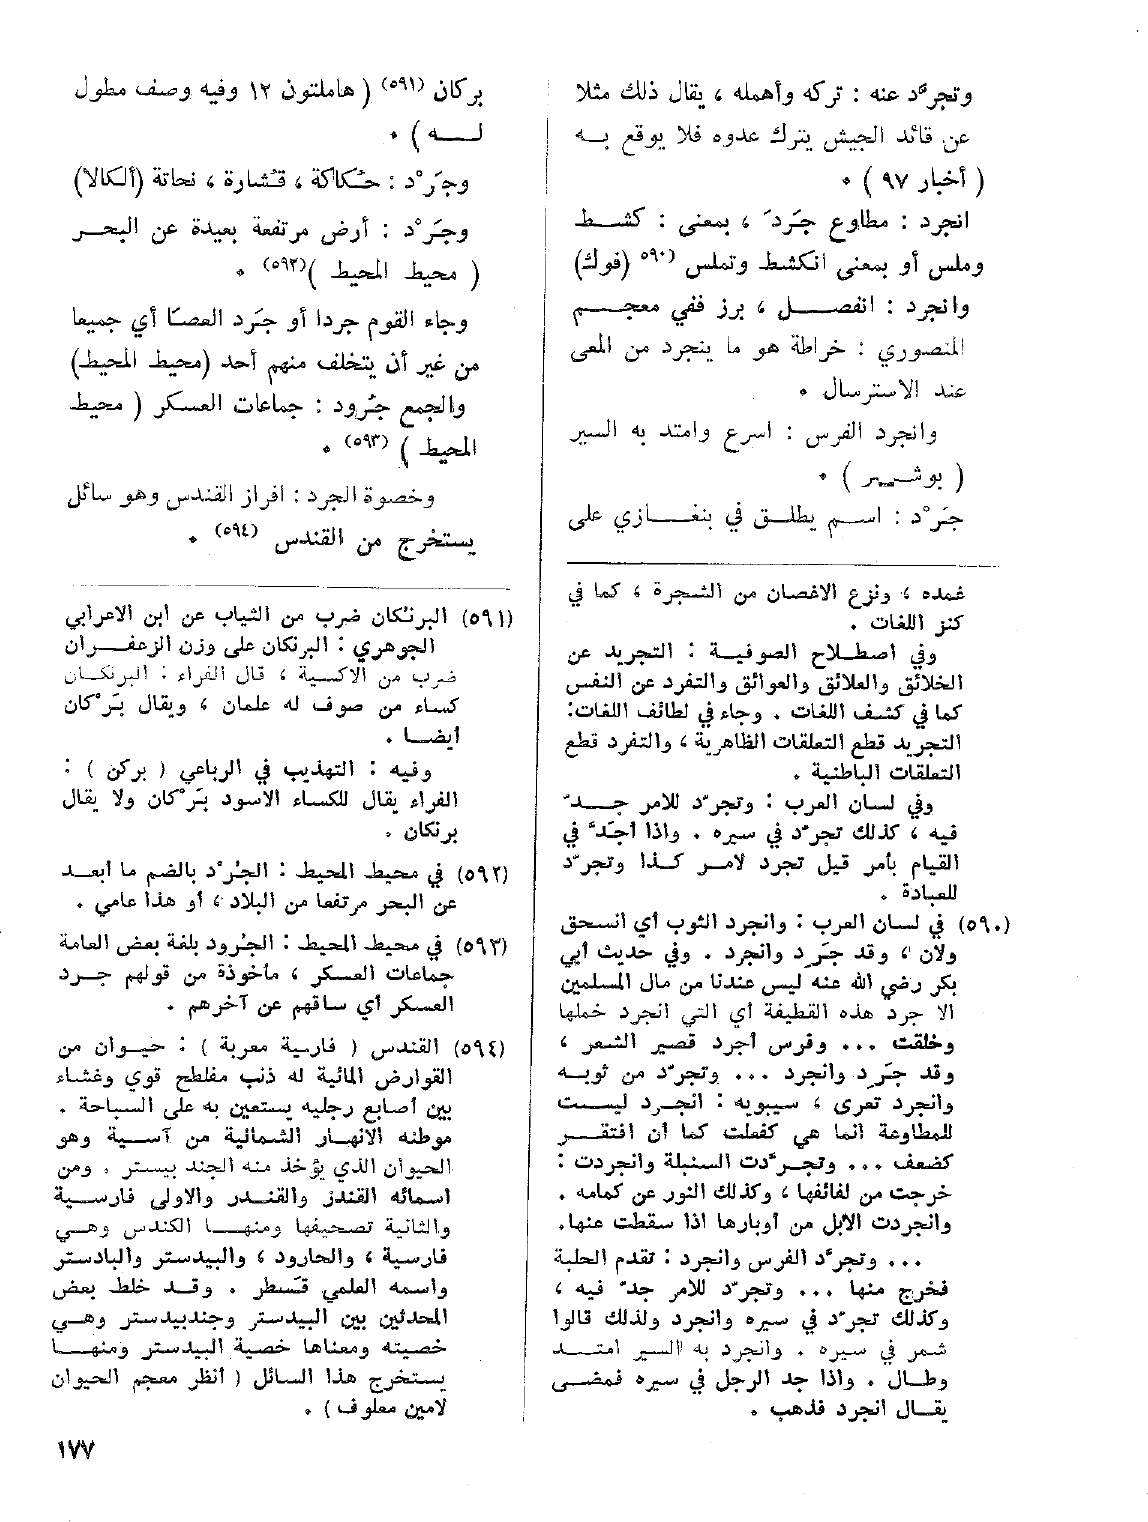 وتجرّد عنه : تركه وأهمله ، يقال ذلك مثلا
عن قائد الجيش يترك عدوه فلا يوقع بــه
( أخبار ٩٧ ) .
انجرد : مطاوع جَرد َ ، بمعنى : كشــط
وملس أو بمعنى انكشط وتملس (٥٩٠ (فوك)
وانجرد : انفصــــل ، برز ففي معجــــم
المنصوري : خراطة هو ما ينجرد من المعى
عند الاسترسال .
وانجرد الفرس : اسرع وامتد به السير
( بوشــر ) .
جَرْد : اســم يطلــق في بنغــازي على
بركان (٥٩١) ( هاملتون ١٢ وفيه وصف مطول
لــــه ) .
وجَرْد : حُكاكة ، قُشارة ، نحاتة (ألكالا)
وجَرْد : أرض مرتفعة بعيدة عن البحــر
( محيط المحيط )(٥٩٢) .
وجاء القوم جردا أو جَرد العصَا أي جميعا
من غير أن يتخلف منهم أحد (محيط المحيط)
والجمع جُرود : جماعات العسكر ( محيط
المحيط ) (٥٩٣) .
وخصوة الجرد : افراز القندس وهو سائل
يستخرج من القندس (٥٩٤) .
غمده ، ونزع الاغصان من الشجرة ، كما في
كنز اللغات .
وفي اصطــلاح الصوفيــة : التجريد عن
الخلائق والعلائق والعوائق والتفرد عن النفس
كما في كشف اللغات . وجاء في لطائف اللغات:
التجريد قطع التعلقات الظاهرية ، والتفرد قطع
التعلقات الباطنية .
وفي لسان العرب : وتجرّد للامر جــدّ
فيه ، كذلك تجرّد في سيره . واذا أجَدّ في
القيام بأمر قيل تجرد لامــر كــذا وتجرّد
للعبادة .
(٥٩٠) في لسان العرب : وانجرد الثوب أي انسحق
ولان ، وقد جَرِد وانجرد . وفي حديث أبي
بكر رضي الله عنه ليس عندنا من مال المسلمين
الا جرد هذه القطيفة أي التي انجرد خملها
وخلقت ... وفرس أجرد قصير الشعر ،
وقد جَرِد وانجرد ... وتجرّد من ثوبــه
وانجرد تعرى ، سيبويه : انجــرد ليســت
للمطاوعة انما هي كفعلت كما أن افتقــر
كضعف ... وتجــرّدت السنبلة وانجردت :
خرجت من لفائفها ، وكذلك النور عن كمامه .
وانجردت الابل من أوبارها اذا سقطت عنها.
... وتجرّد الفرس وانجرد : تقدم الحلبة
فخرج منها ... وتجرّد للامر جدّ فيه ،
وكذلك تجرّد في سيره وانجرد ولذلك قالوا
شمر في سيره . وانجرد به السير امتــد
وطال . واذا جد الرجل في سيره فمضــى
يقــال انجرد فذهب .
(٥٩١) البرنكان ضرب من الثياب عن ابن الاعرابي
الجوهري : البرنكان على وزن الزعفــران
ضرب من الاكسية ، قال الفراء : البرنكــان
كساء من صوف له علمان ، ويقال بَرْكان
أيضــا .
وفيه : التهذيب في الرباعي ( بركن ) :
الفراء يقال للكساء الاسود بَرْكان ولا يقال
برنكان .
(٥٩٢) في محيط المحيط : الجُرْد بالضم ما أبعــد
عن البحر مرتفعا من البلاد ، أو هذا عامي .
(٥٩٣) في محيط المحيط : الجُرود بلغة بعض العامة
جماعات العسكر ، مأخوذة من قولهم جــرد
العسكر أي ساقهم عن آخرهم .
(٥٩٤) القندس ( فارسية معربة ) : حيــوان من
القوارض المائية له ذنب مفلطح قوي وغشاء
بين أصابع رجليه يستعين به على السباحة .
موطنه الانهــار الشمالية من آسية وهو
الحيوان الذي يؤخذ منه الجند بيستر . ومن
اسمائه القندز والقنــدر والاولى فارسيــة
والثانية تصحيفها ومنهــا الكندس وهــي
فارسية ، والحارود ، والبيدستر والبادستر
واسمه العلمي قسطر . وقــد خلط بعض
المحدثين بين البيدستر وجندبيدستر وهــي
خصيته ومعناها خصية البيدستر ومنهــا
يستخرج هذا السائل ( أنظر معجم الحيوان
لامين معلوف ) .
١٧٧